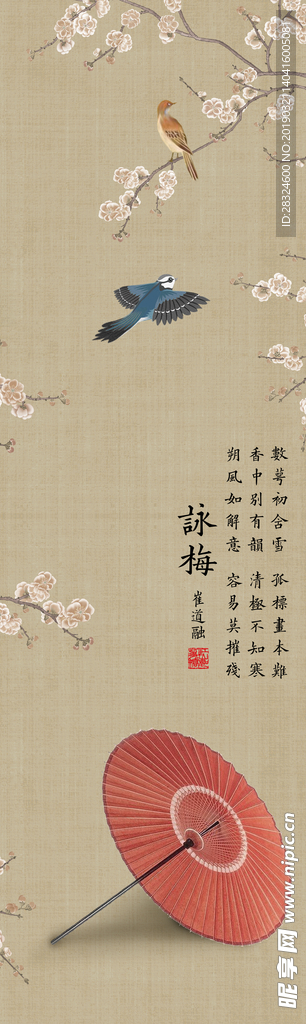 數萼初含雪 孤標畫本難
香中別有韻 清極不知寒
朔風如解意 容易莫摧殘
詠梅
崔道融
昵享网 www.nipic.cn
ID:28324600 NO:20190321140416005081